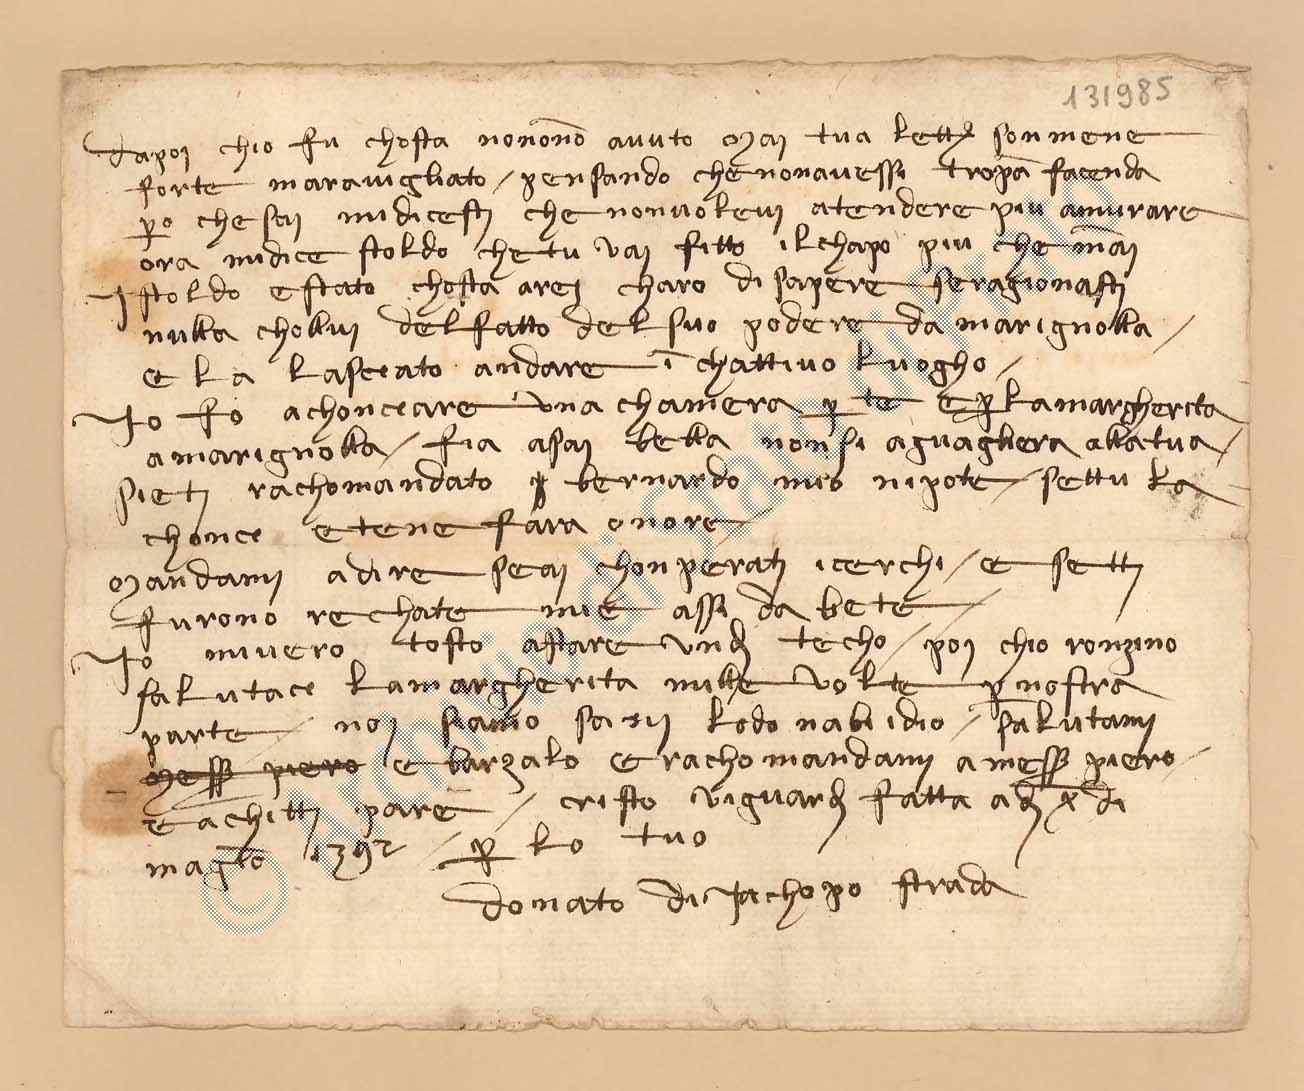 131985
dapoi chio fu chosta nononō avuto mai tua letta sonmene
forte maravigliato / pensando che nonavessi tropa facenda
po che sai midicesti che nonvolevi atendere piu amurare
ora midice stoldo chetu vai fitto ilchapo piu che mai
Istoldo e stato chosta arei charo di sapere seragionasti
nulla chollui delfatto delsuo podere da marignolla /
e la lasciato andare ī chattivo luogho /
Io fo achonciare una chamera p te e p lamargherita
amarignolla / fia asai bella nonsi aguagliera allatua /
sieti rachomandato bernardo mio nipote / settu lo
chonci etene fara onore /
mandami adire seai chonperati icerchi / e setti
furono rechate mie assi da bete /
Io mivero tosto astare techo / poi chio ronzino
salutaci lamargherita mille volte p nostra
parte / noi siamo sani lodo nabi idio / salutami
mess piero e barzalo e rachomandami a mess piero /
e achitti pare / cristo viguardi fatta adi x di
magio 1392 / p lo tuo
donato di Jachopo strada